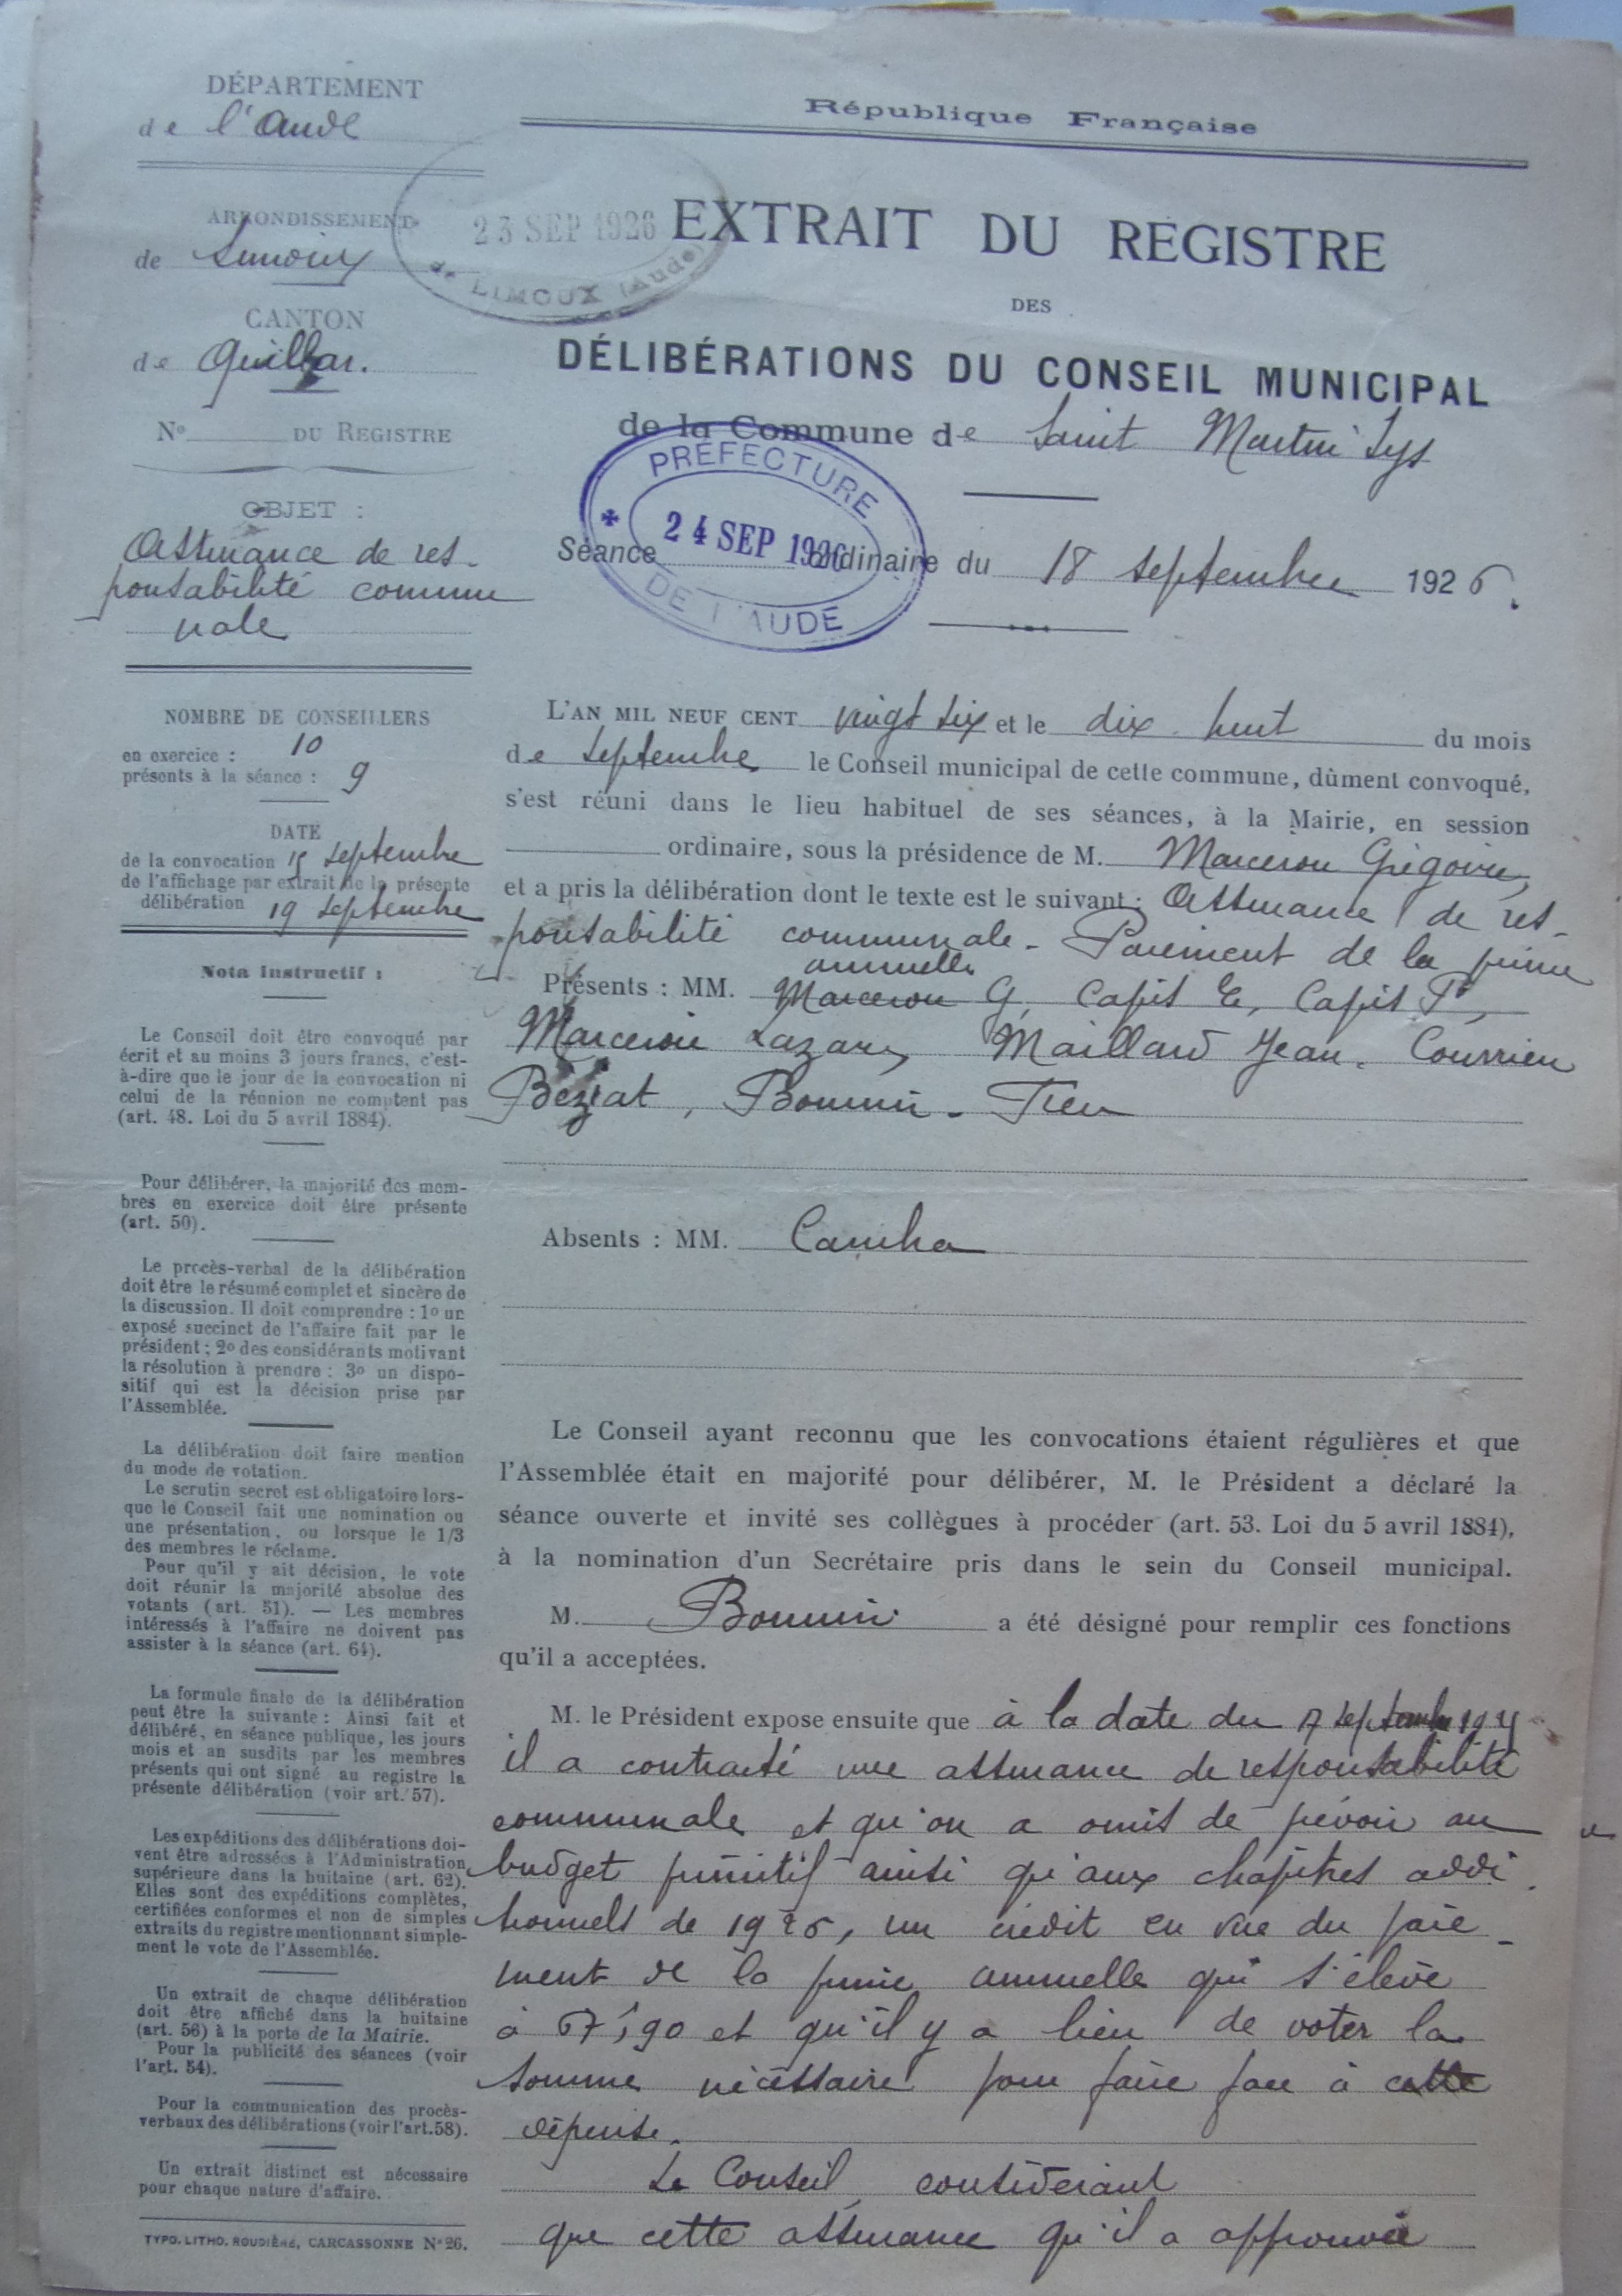 DÉPARTEMENT
de l'Aude
ARRONDISSEMENT
de Limoux
CANTON
de Quillan.
N° DU REGISTRE
OBJET :
Assurance de res-
ponsabilité commu
nale
NOMBRE DE CONSEILLERS
en exercice : 10
présents à la séance : 9
DATE
de la convocation 15 septembre
de l'affichage par extrait de la présente
délibération 19 septembre
Nota instructif :
Le Conseil doit être convoqué par
écrit et au moins 3 jours francs, c'est-
à-dire que le jour de la convocation ni
celui de la réunion ne comptent pas
(art. 48. Loi du 5 avril 1884).
Pour délibérer, la majorité des mem-
bres en exercice doit être présente
(art. 50).
Le procès-verbal de la délibération
doit être le résumé complet et sincère de
la discussion. Il doit comprendre : 1o un
exposé succinct de l'affaire fait par le
président ; 2o des considérants motivant
la résolution à prendre : 3o un dispo-
sitif qui est la décision prise par
l'Assemblée.
La délibération doit faire mention
du mode de votation.
Le scrutin secret est obligatoire lors-
que le Conseil fait une nomination ou
une présentation, ou lorsque le 1/3
des membres le réclame.
Pour qu'il y ait décision, le vote
doit réunir la majorité absolue des
votants (art. 51). — Les membres
intéressés à l'affaire ne doivent pas
assister à la séance (art. 64).
La formule finale de la délibération
peut être la suivante : Ainsi fait et
délibéré, en séance publique, les jours
mois et an susdits par les membres
présents qui ont signé au registre la
présente délibération (voir art. 57).
Les expéditions des délibérations doi-
vent être adressées à l'Administration
supérieure dans la huitaine (art. 62).
Elles sont des expéditions complètes,
certifiées conformes et non de simples
extraits du registre mentionnant simple-
ment le vote de l'Assemblée.
Un extrait de chaque délibération
doit être affiché dans la huitaine
(art. 56) à la porte de la Mairie.
Pour la publicité des séances (voir
l'art. 54).
Pour la communication des procès-
verbaux des délibérations (voir l'art. 58).
Un extrait distinct est nécessaire
pour chaque nature d'affaire.
TYPO. LITHO. ROUDIÈRE, CARCASSONNE N° 26.
République Française
23 SEP 1926
de LIMOUX (Aude)
EXTRAIT DU REGISTRE
DES
DÉLIBÉRATIONS DU CONSEIL MUNICIPAL
de la Commune de Saint Martin Lys
PRÉFECTURE
24 SEP 1926
DE L'AUDE
Séance ordinaire du 18 septembre 1926.
L'AN MIL NEUF CENT vingt six et le dix huit du mois
de septembre le Conseil municipal de cette commune, dûment convoqué,
s'est réuni dans le lieu habituel de ses séances, à la Mairie, en session
ordinaire, sous la présidence de M. Marcerou Grégoire,
et a pris la délibération dont le texte est le suivant : Assurance de res-
ponsabilité communale - Paiement de la prime
annuelle
Présents : MM. Marcerou G, Capit E, Capit P,
Marcerou Lazare, Maillard Jean. Courrieu
Béziat, Bounin -
Absents : MM.
Le Conseil ayant reconnu que les convocations étaient régulières et que
l'Assemblée était en majorité pour délibérer, M. le Président a déclaré la
séance ouverte et invité ses collègues à procéder (art. 53. Loi du 5 avril 1884),
à la nomination d'un Secrétaire pris dans le sein du Conseil municipal.
M. Bounin a été désigné pour remplir ces fonctions
qu'il a acceptées.
M. le Président expose ensuite que à la date du septembre
il a contracté une assurance de responsabilité
communale et qu'on a omis de prévoir au
budget primitif ainsi qu'aux chapitres addi
tionnels de 1926, un crédit en vue du paie-
ment de la prime annuelle qui s'élève
à 67f,90 et qu'il y a lieu de voter la
somme nécessaire pour faire face à cette
dépense.
Le Conseil, considérant
que cette assurance qu'il a approuvée